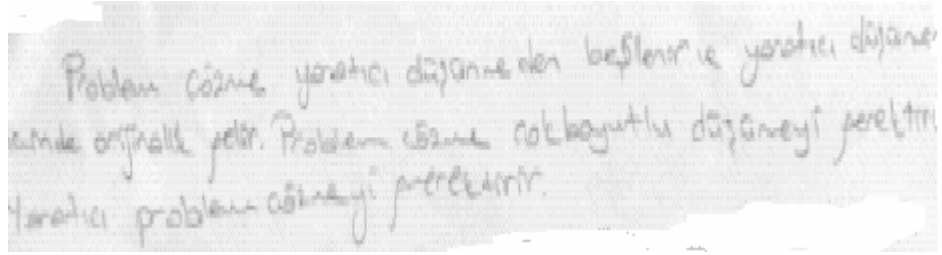 Problem çözme yaratıcı düşünmeden beslenir ve yaratıcı düşünce
orijinallik gelir. Problem çözme çok boyutlu düşünmeyi gerektirir
Yaratıcı problem çözmeyi gerektirir.